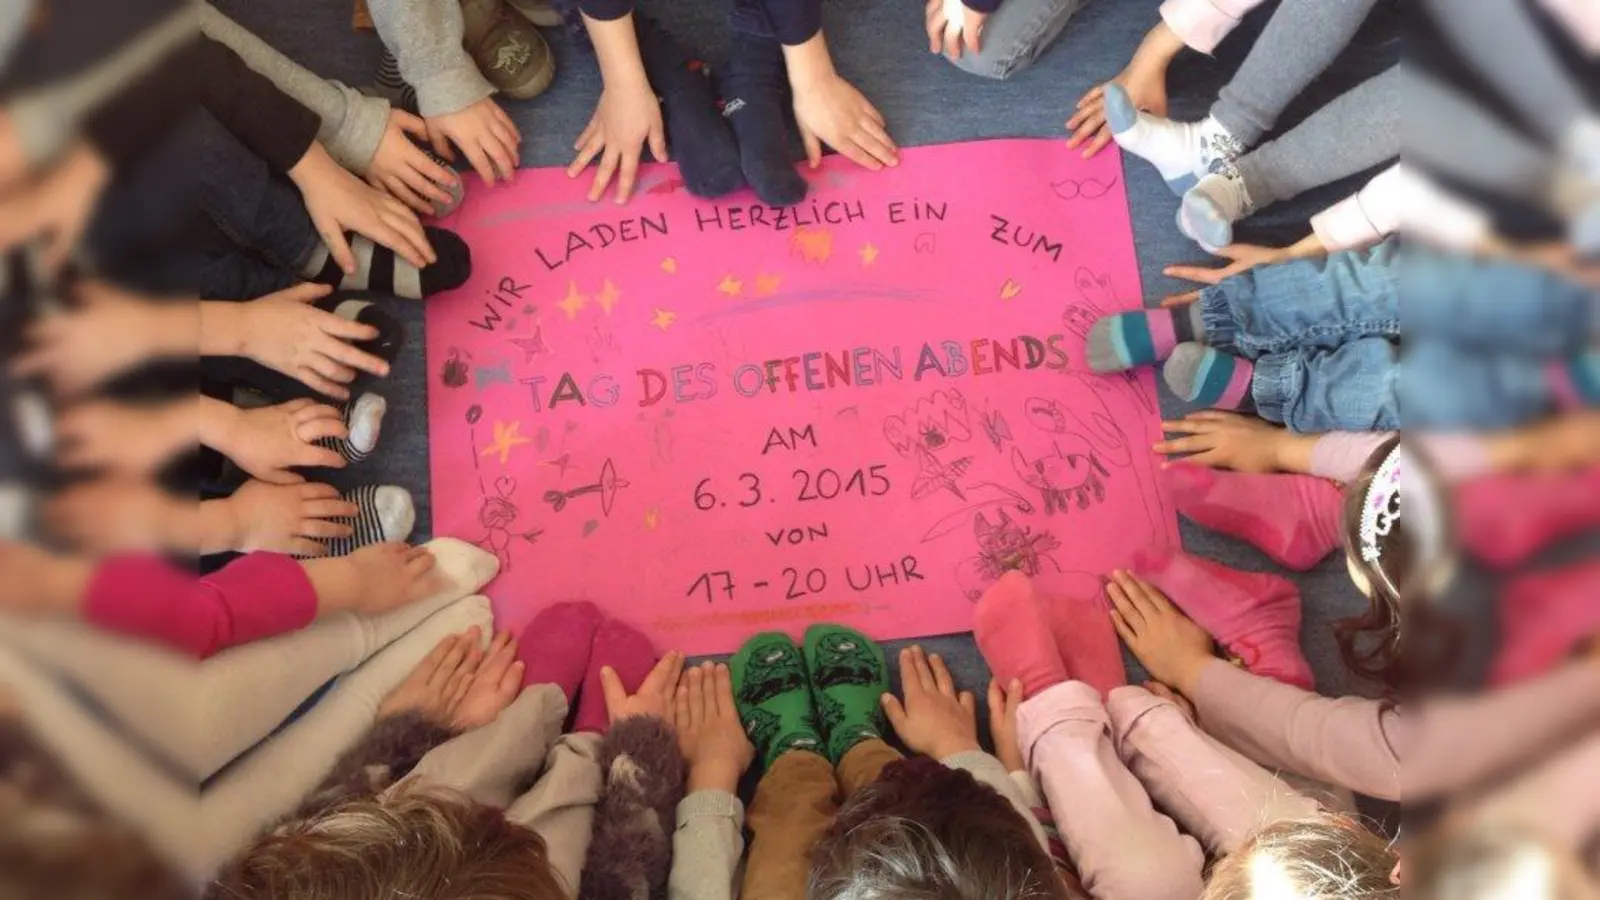 WIR LADEN HERZLICH EIN ZUM
TAG DES OFFENEN ABENDS
AM
6.3.2015
VON
17-20 UHR